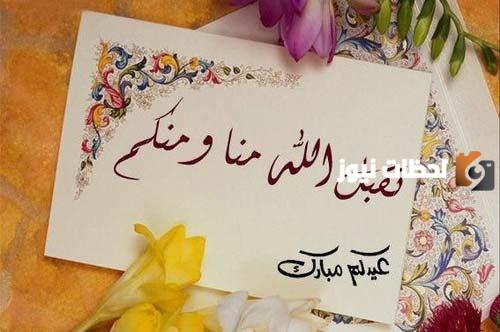 تقبل الله منا ومنكم
لحظات نيوز
عيدكم مبارك